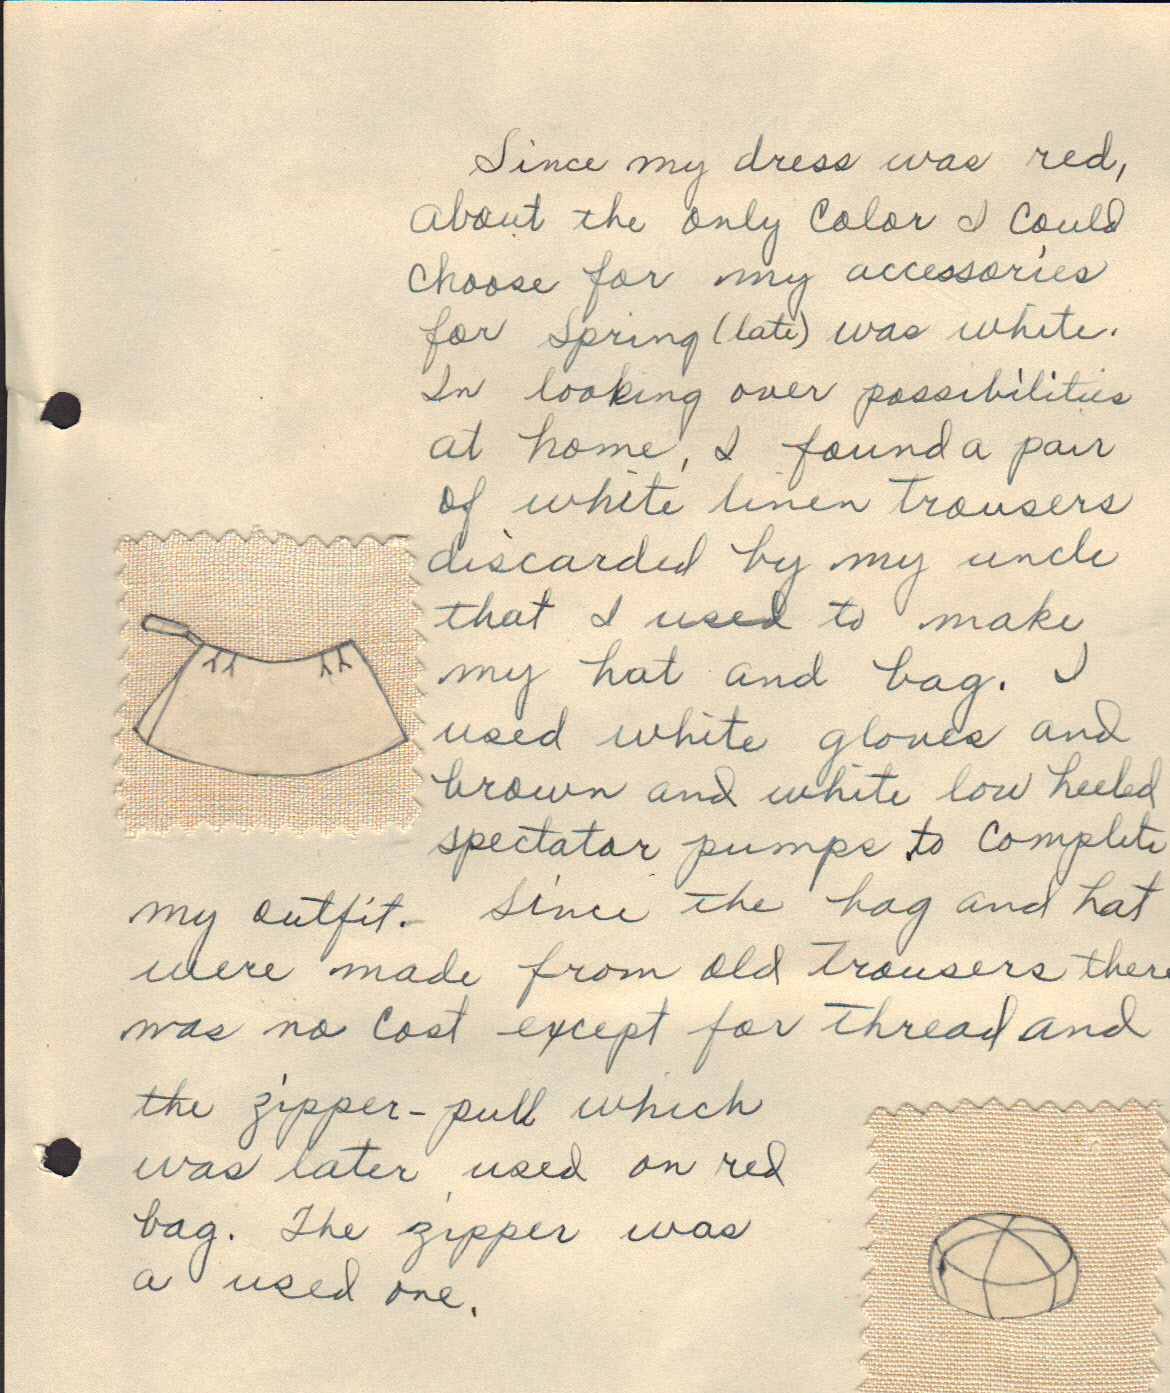 Since my dress was red,
about the only color I could
choose for my accessories
for spring (late) was white.
In looking over possibilities
at home, I found a pair
of white linen trousers
discarded by my uncle
that I used to make
my hat and bag. I
used white gloves and
brown and white low heeled
spectator pumps to complete
my outfit. Since the bag and hat
were made from old trousers there
was no cost except for thread and
the zipper-pull which
was later used on red
bag. The zipper was
a used one.